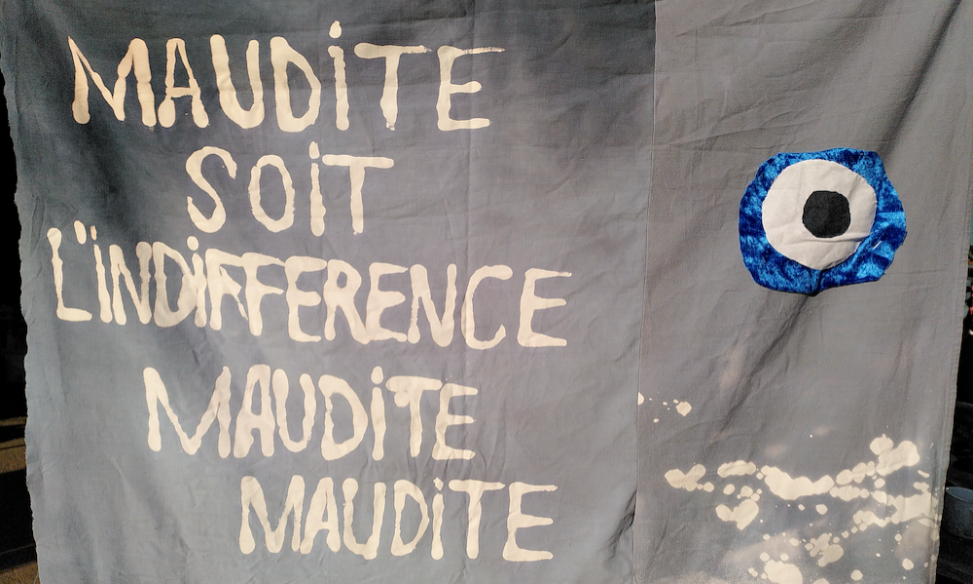 MAUDITE
SOIT
L'INDIFFERENCE
MAUDITE
MAUDITE